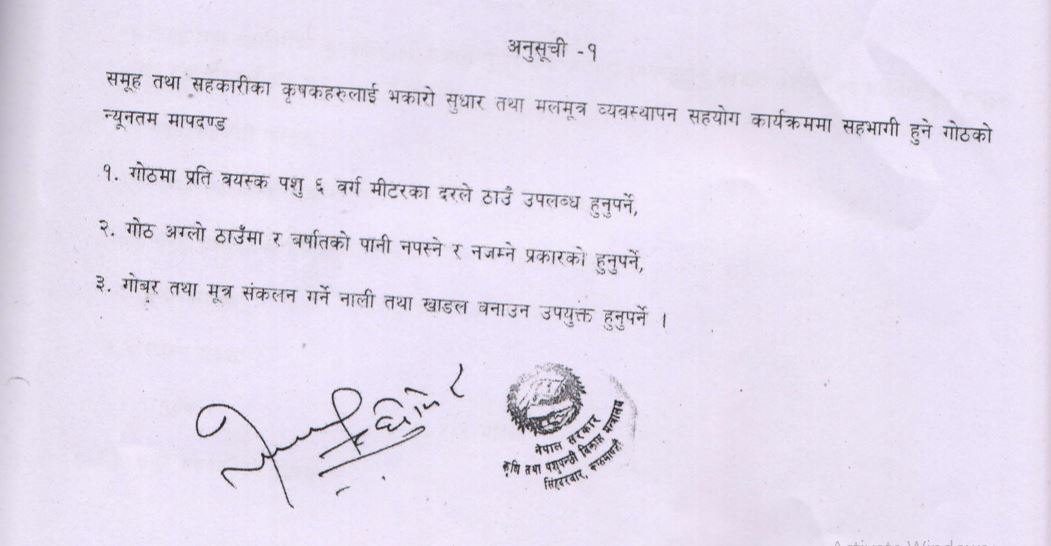 अनुसूची -१
समूह तथा सहकारीका कृषकहरुलाई भकारो सुधार तथा मलमूत्र व्यवस्थापन सहयोग कार्यक्रममा सहभागी हुने गोठको
न्यूनतम मापदण्ड
१. गोठमा प्रति वयस्क पशु ६ वर्ग मीटरका दरले ठाउँ उपलब्ध हुनुपर्ने,
२. गोठ अग्लो ठाउँमा र बर्षातको पानी नपस्ने र नजम्ने प्रकारको हुनुपर्ने,
३. गोबर तथा मूत्र संकलन गर्ने नाली तथा खाडल बनाउन उपयुक्त हुनुपर्ने ।
नेपाल सरकार
कृषि तथा पशुपन्छी विकास मन्त्रालय
सिंहदरबार, काठमाण्डौ